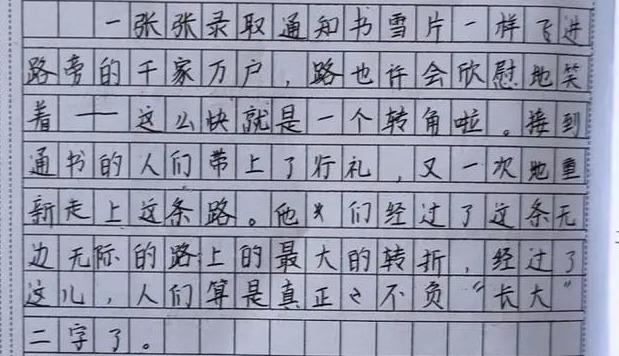 一张张录取通知书雪片一样飞进
路旁的千家万户，路也许会欣慰地笑
着——这么快就是一个转角啦。接到
通书的人们带上了行礼，又一次地重
新走上这条路。他们经过了这条无
边无际的路上的最大的转折，经过了
这儿，人们算是真正不负“长大”
二字了。